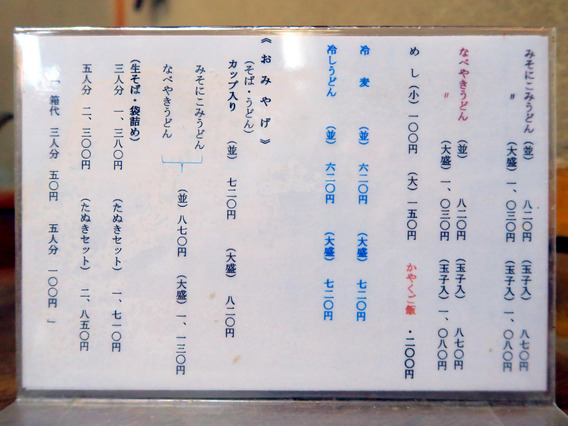 みそにこみうどん (並) 八二〇円 (玉子入) 八七〇円
〃 (大盛) 一、〇三〇円 (玉子入) 一、〇八〇円
なべやきうどん (並) 八二〇円 (玉子入) 八七〇円
〃 (大盛) 一、〇三〇円 (玉子入) 一、〇八〇円
めし(小) 一〇〇円 (大) 一五〇円 かやくご飯・二〇〇円
冷麦 (並) 六二〇円 (大盛) 七二〇円
冷しうどん (並) 六二〇円 (大盛) 七二〇円
《おみやげ》
(そば・うどん)
カップ入り (並) 七二〇円 (大盛) 八二〇円
みそにこみうどん
なべやきうどん (並) 八七〇円 (大盛) 一、一三〇円
(生そば・袋詰め)
三人分 一、三八〇円 (たぬきセット) 一、七一〇円
五人分 二、三〇〇円 (たぬきセット) 二、八五〇円
「箱代 三人分 五〇円 五人分 一〇〇円」